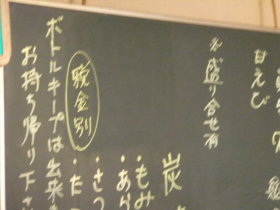 甘えび
※盛り合せ有
炭
・もみ
・あら
・さつ
・た
税金別
ボトルキープは出来ま
お持ち帰り下さ